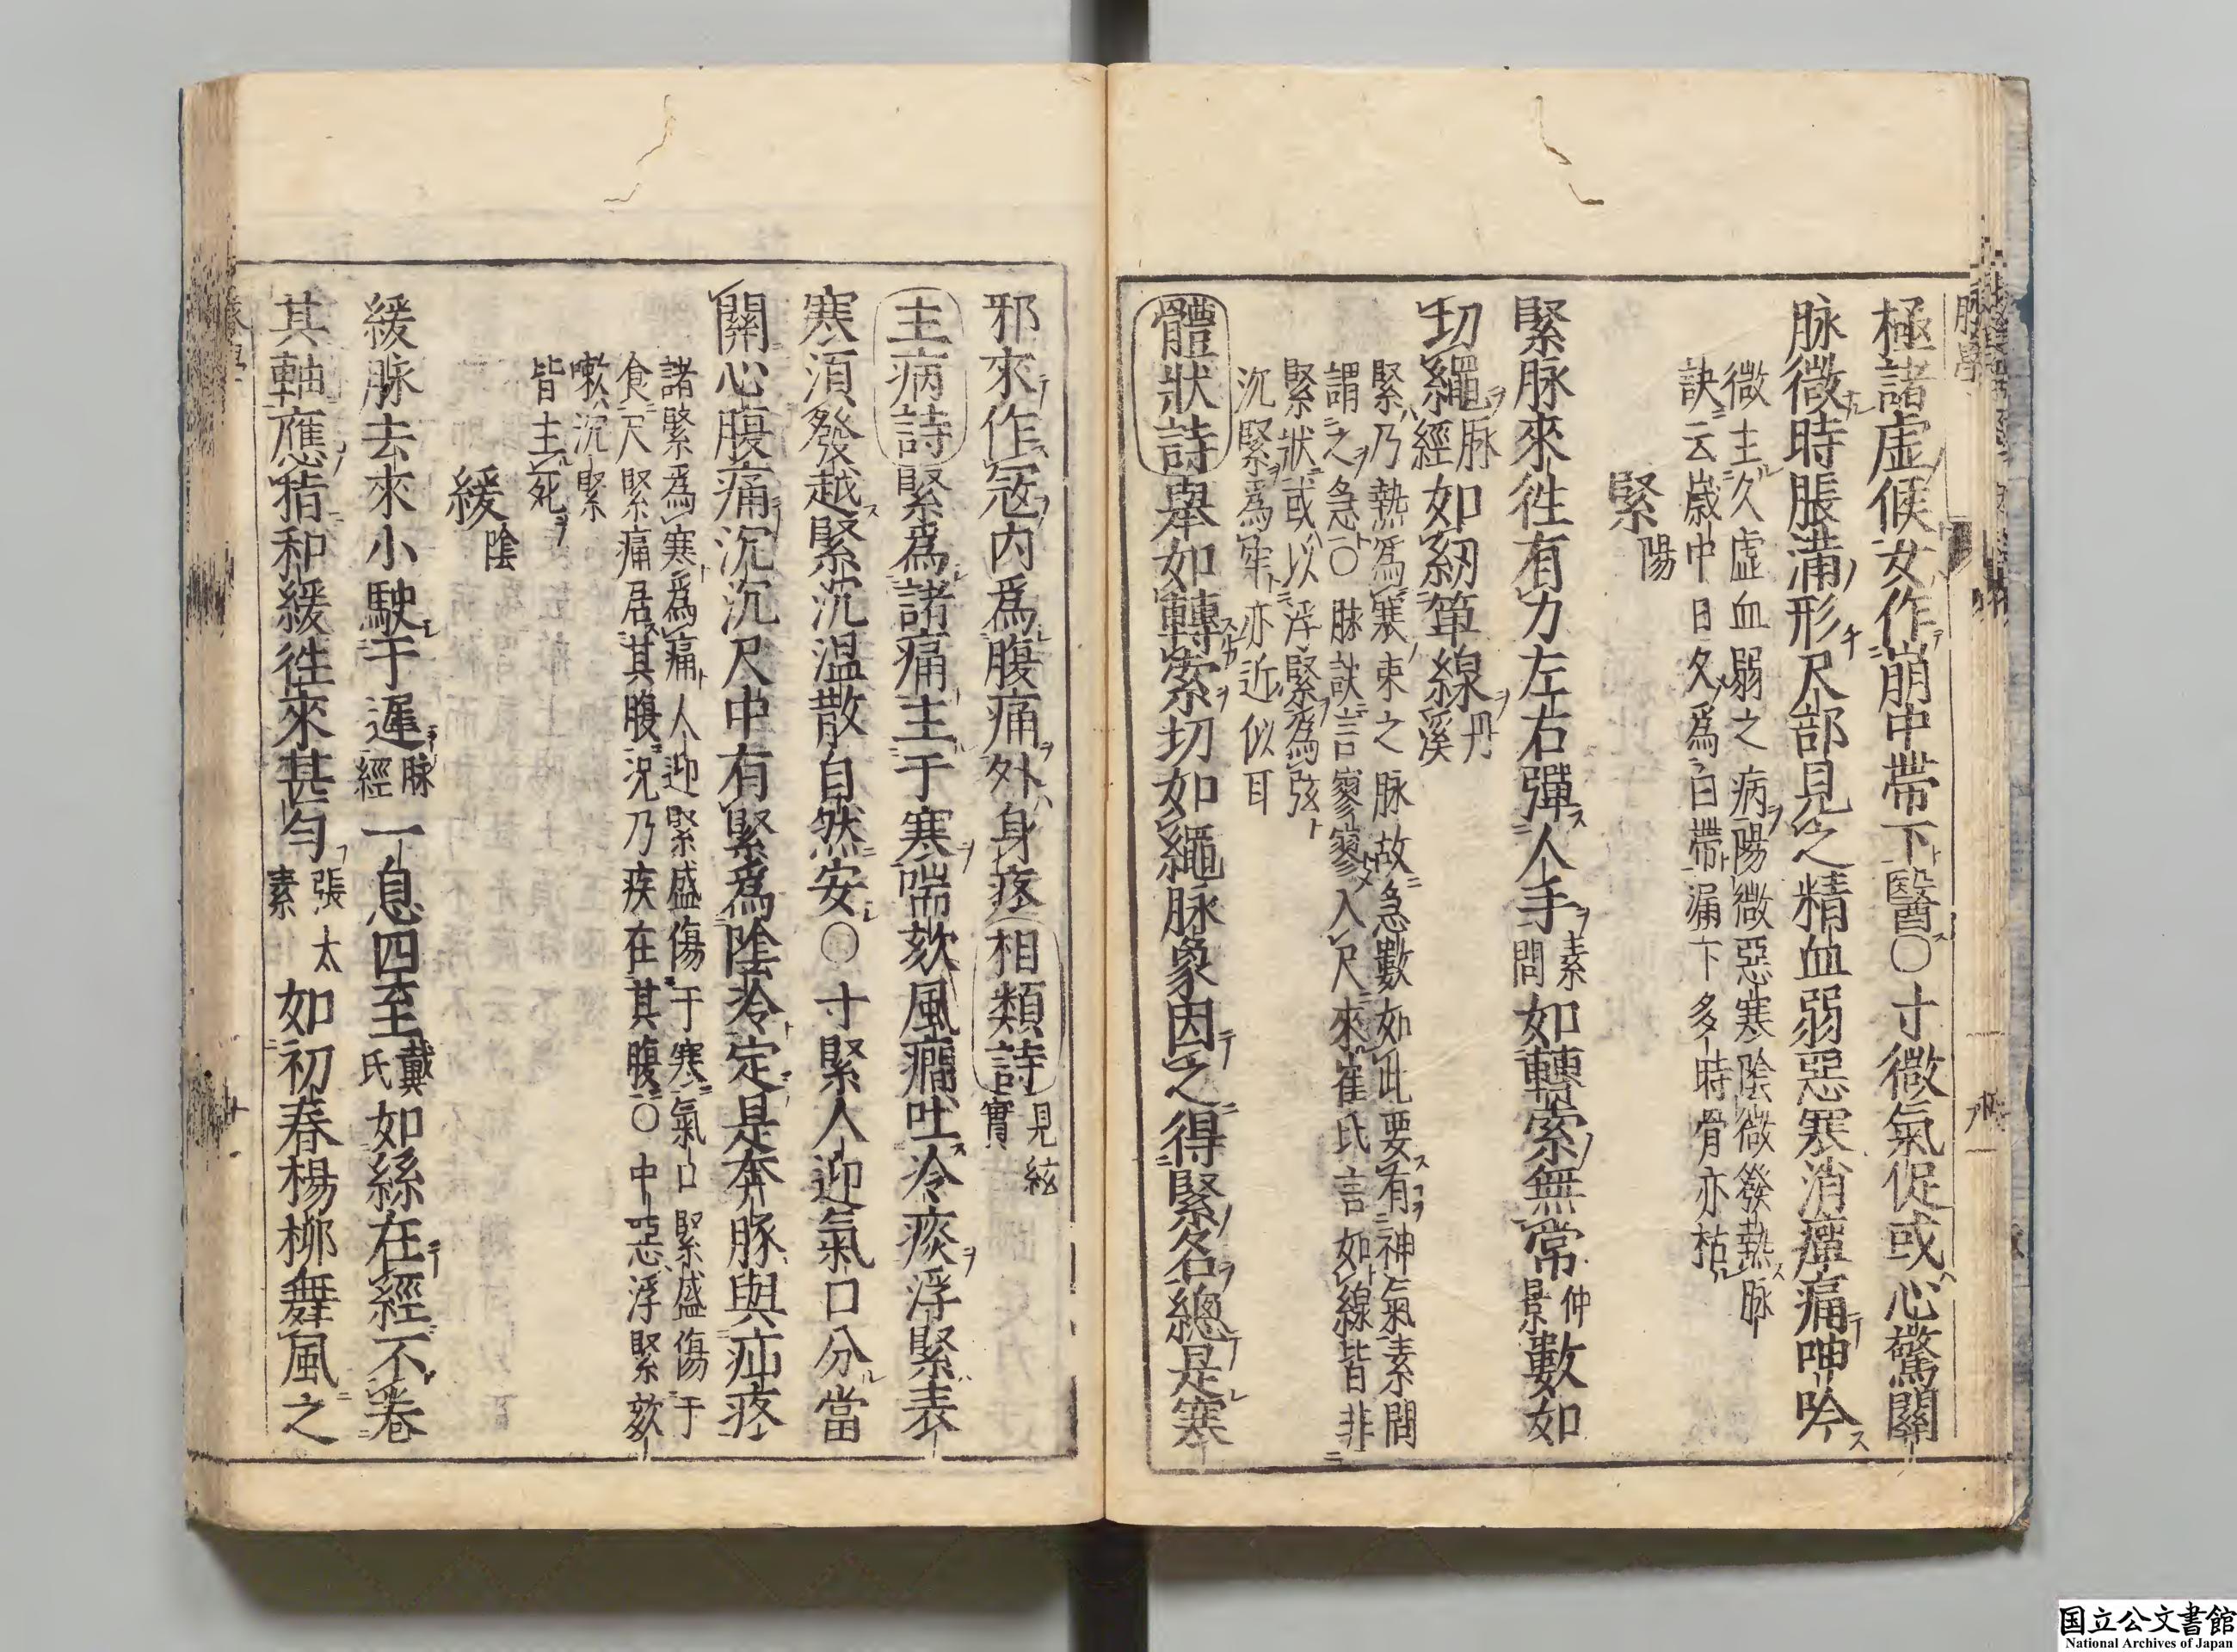 極諸虛候女作崩中帶下醫〇寸微氣促或心驚關
脉微時脹滿形尺部見之精血弱惡寒消癉痛呻吟
微主久虛血弱之病陽微惡寒陰微發熱脉
訣云崩中日久爲白帶漏下多時骨亦枯
緊陽
緊脉來徃有力左右彈人手素問如轉索無常仲景數如
切繩脉經如紉箄線丹溪
緊乃熱爲寒束之脉故急數如此要有神氣素問
謂之急〇脉訣言寥寥入尺來崔氏言如線皆非
緊狀或以浮緊爲弦
沉緊爲牢亦近似耳
體狀詩舉如轉索切如繩脉象因之得緊名總是寒
邪來作寇内爲腹痛外身疼相類詩見絃實
主病詩緊爲諸痛主于寒喘欬風癇吐冷痰浮緊表
寒須發越緊沉温散自然安〇寸緊人迎氣口分當
關心腹痛沉沉尺中有緊爲陰冷定是奔豚與疝疼
諸緊爲寒爲痛人迎緊盛傷于寒氣口緊盛傷于
食尺緊痛居其腹況乃疾在其腹〇中惡浮緊欬
嗽沉緊
皆主死
緩陰
緩脉去來小駛于遲脉經一息四至戴氏如絲在經不卷
其軸應指和緩徃來甚匀張太素如初春楊柳舞風之
脉學
国立公文書館
National Archives of Japan